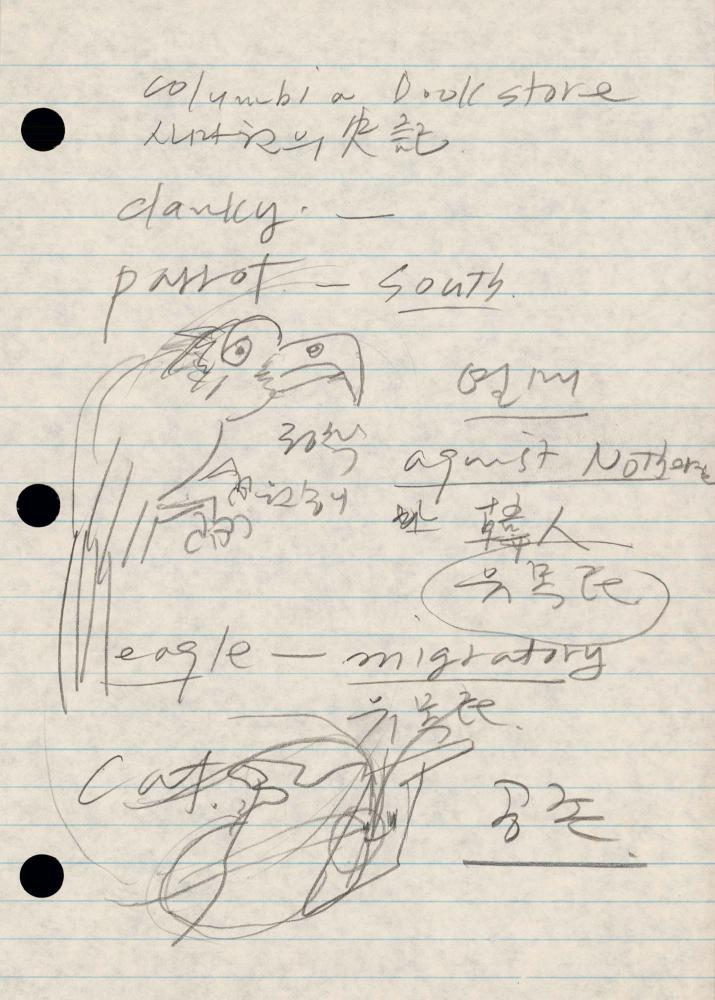 columbia Bookstore
사마천의 史記
danky. —
parrot — South.
열대
against Nothern
韓人
유목民
eagle — migratory
유목民.
Cat.
공존.